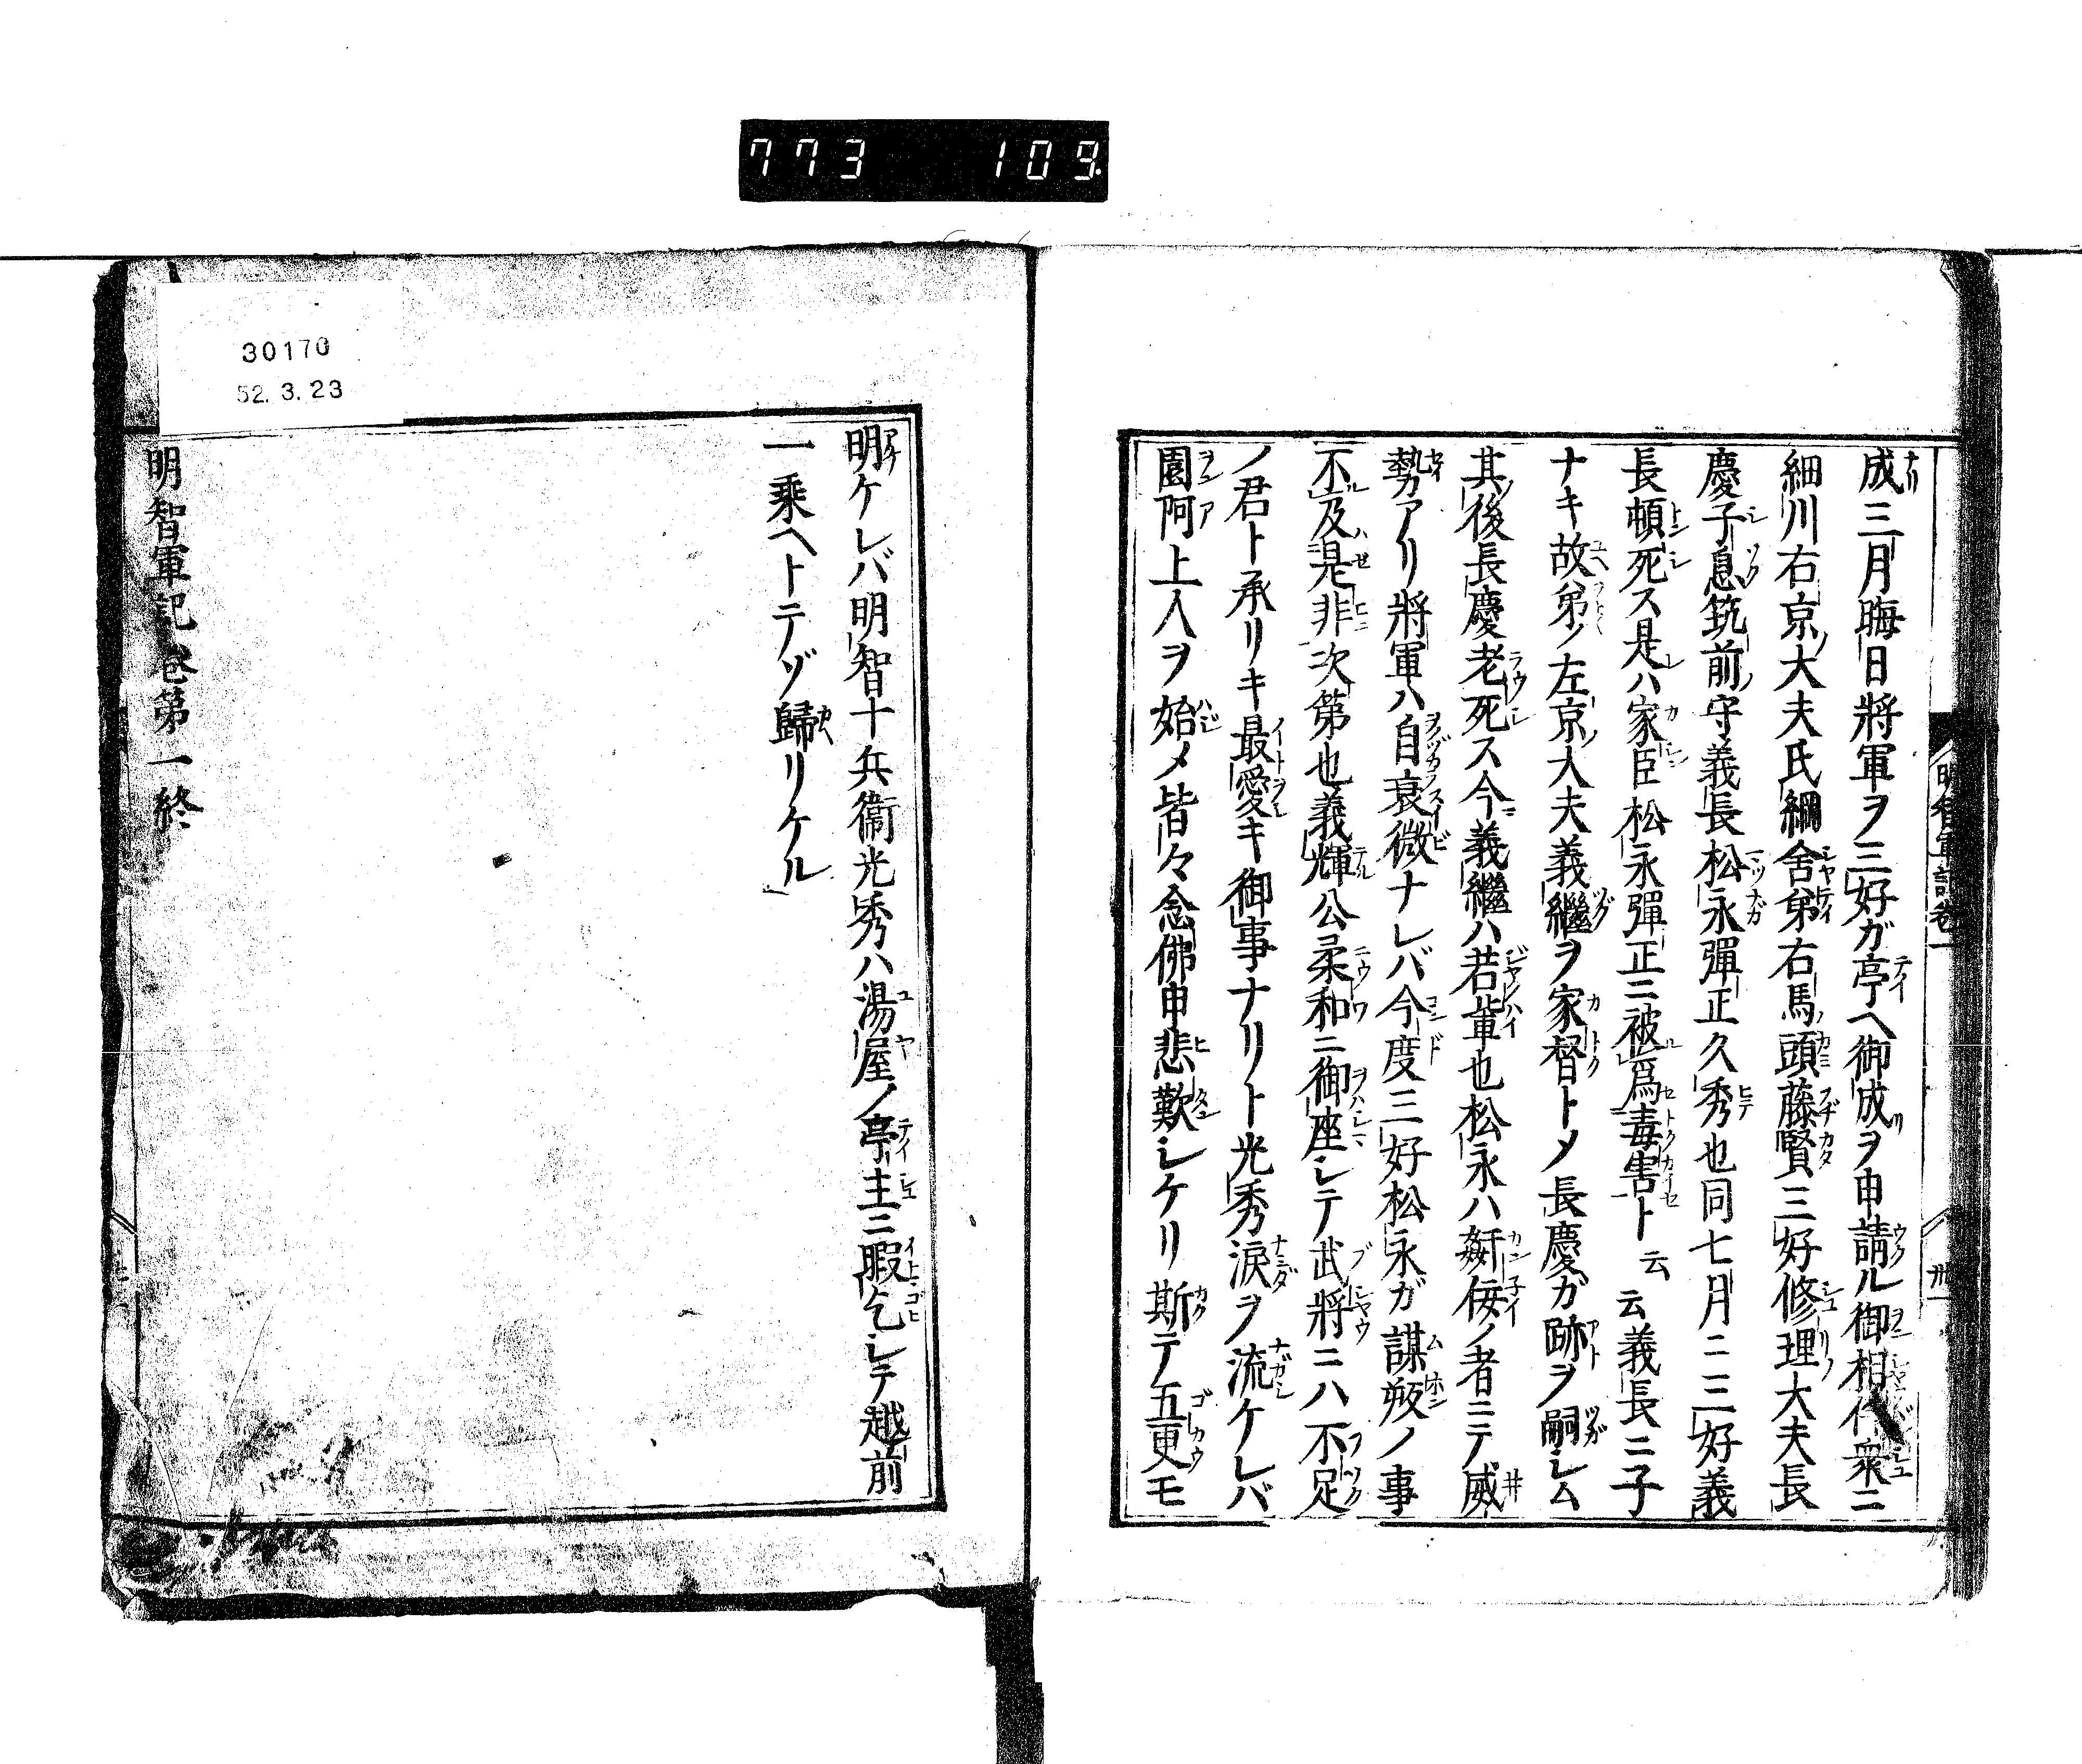 773 109
成三月晦日將軍ヲ三好ガ亭ヘ御成ヲ申請ル御相伴衆ニ
細川右京ノ大夫氏綱舍弟右馬ノ頭藤賢三好修理大夫長
慶子息筑前ノ守義長松永彈正久秀也同七月ニ三好義
長頓死ス是レハ家臣松永彈正ニ被爲毒害ト云云義長ニ子
ナキ故弟ノ左京ノ大夫義繼ヲ家督トメ長慶ガ跡ヲ嗣シム
其後長慶老死ス今義繼ハ若輩也松永ハ姦佞ノ者ニテ威
勢アリ將軍ハ自衰微ナレバ今度三好松永ガ謀叛ノ事
不及是非次第也義輝公柔和ニ御座シテ武將ニハ不足
ノ君ト承リキ最愛キ御事ナリト光秀淚ヲ流ケレバ
園阿上人ヲ始メ皆々念佛申悲歎シケリ斯テ五更モ
明智軍記卷一
卅一
30170
52.3.23
明ケレバ明智十兵衞光秀ハ湯屋ノ亭主ニ暇乞シテ越前
一乘ヘトテゾ歸リケル
明智軍記卷第一終